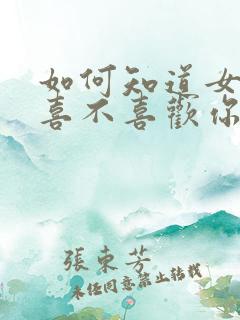 如何知道女
喜不喜歡你
張東芳
未經同意禁止轉載